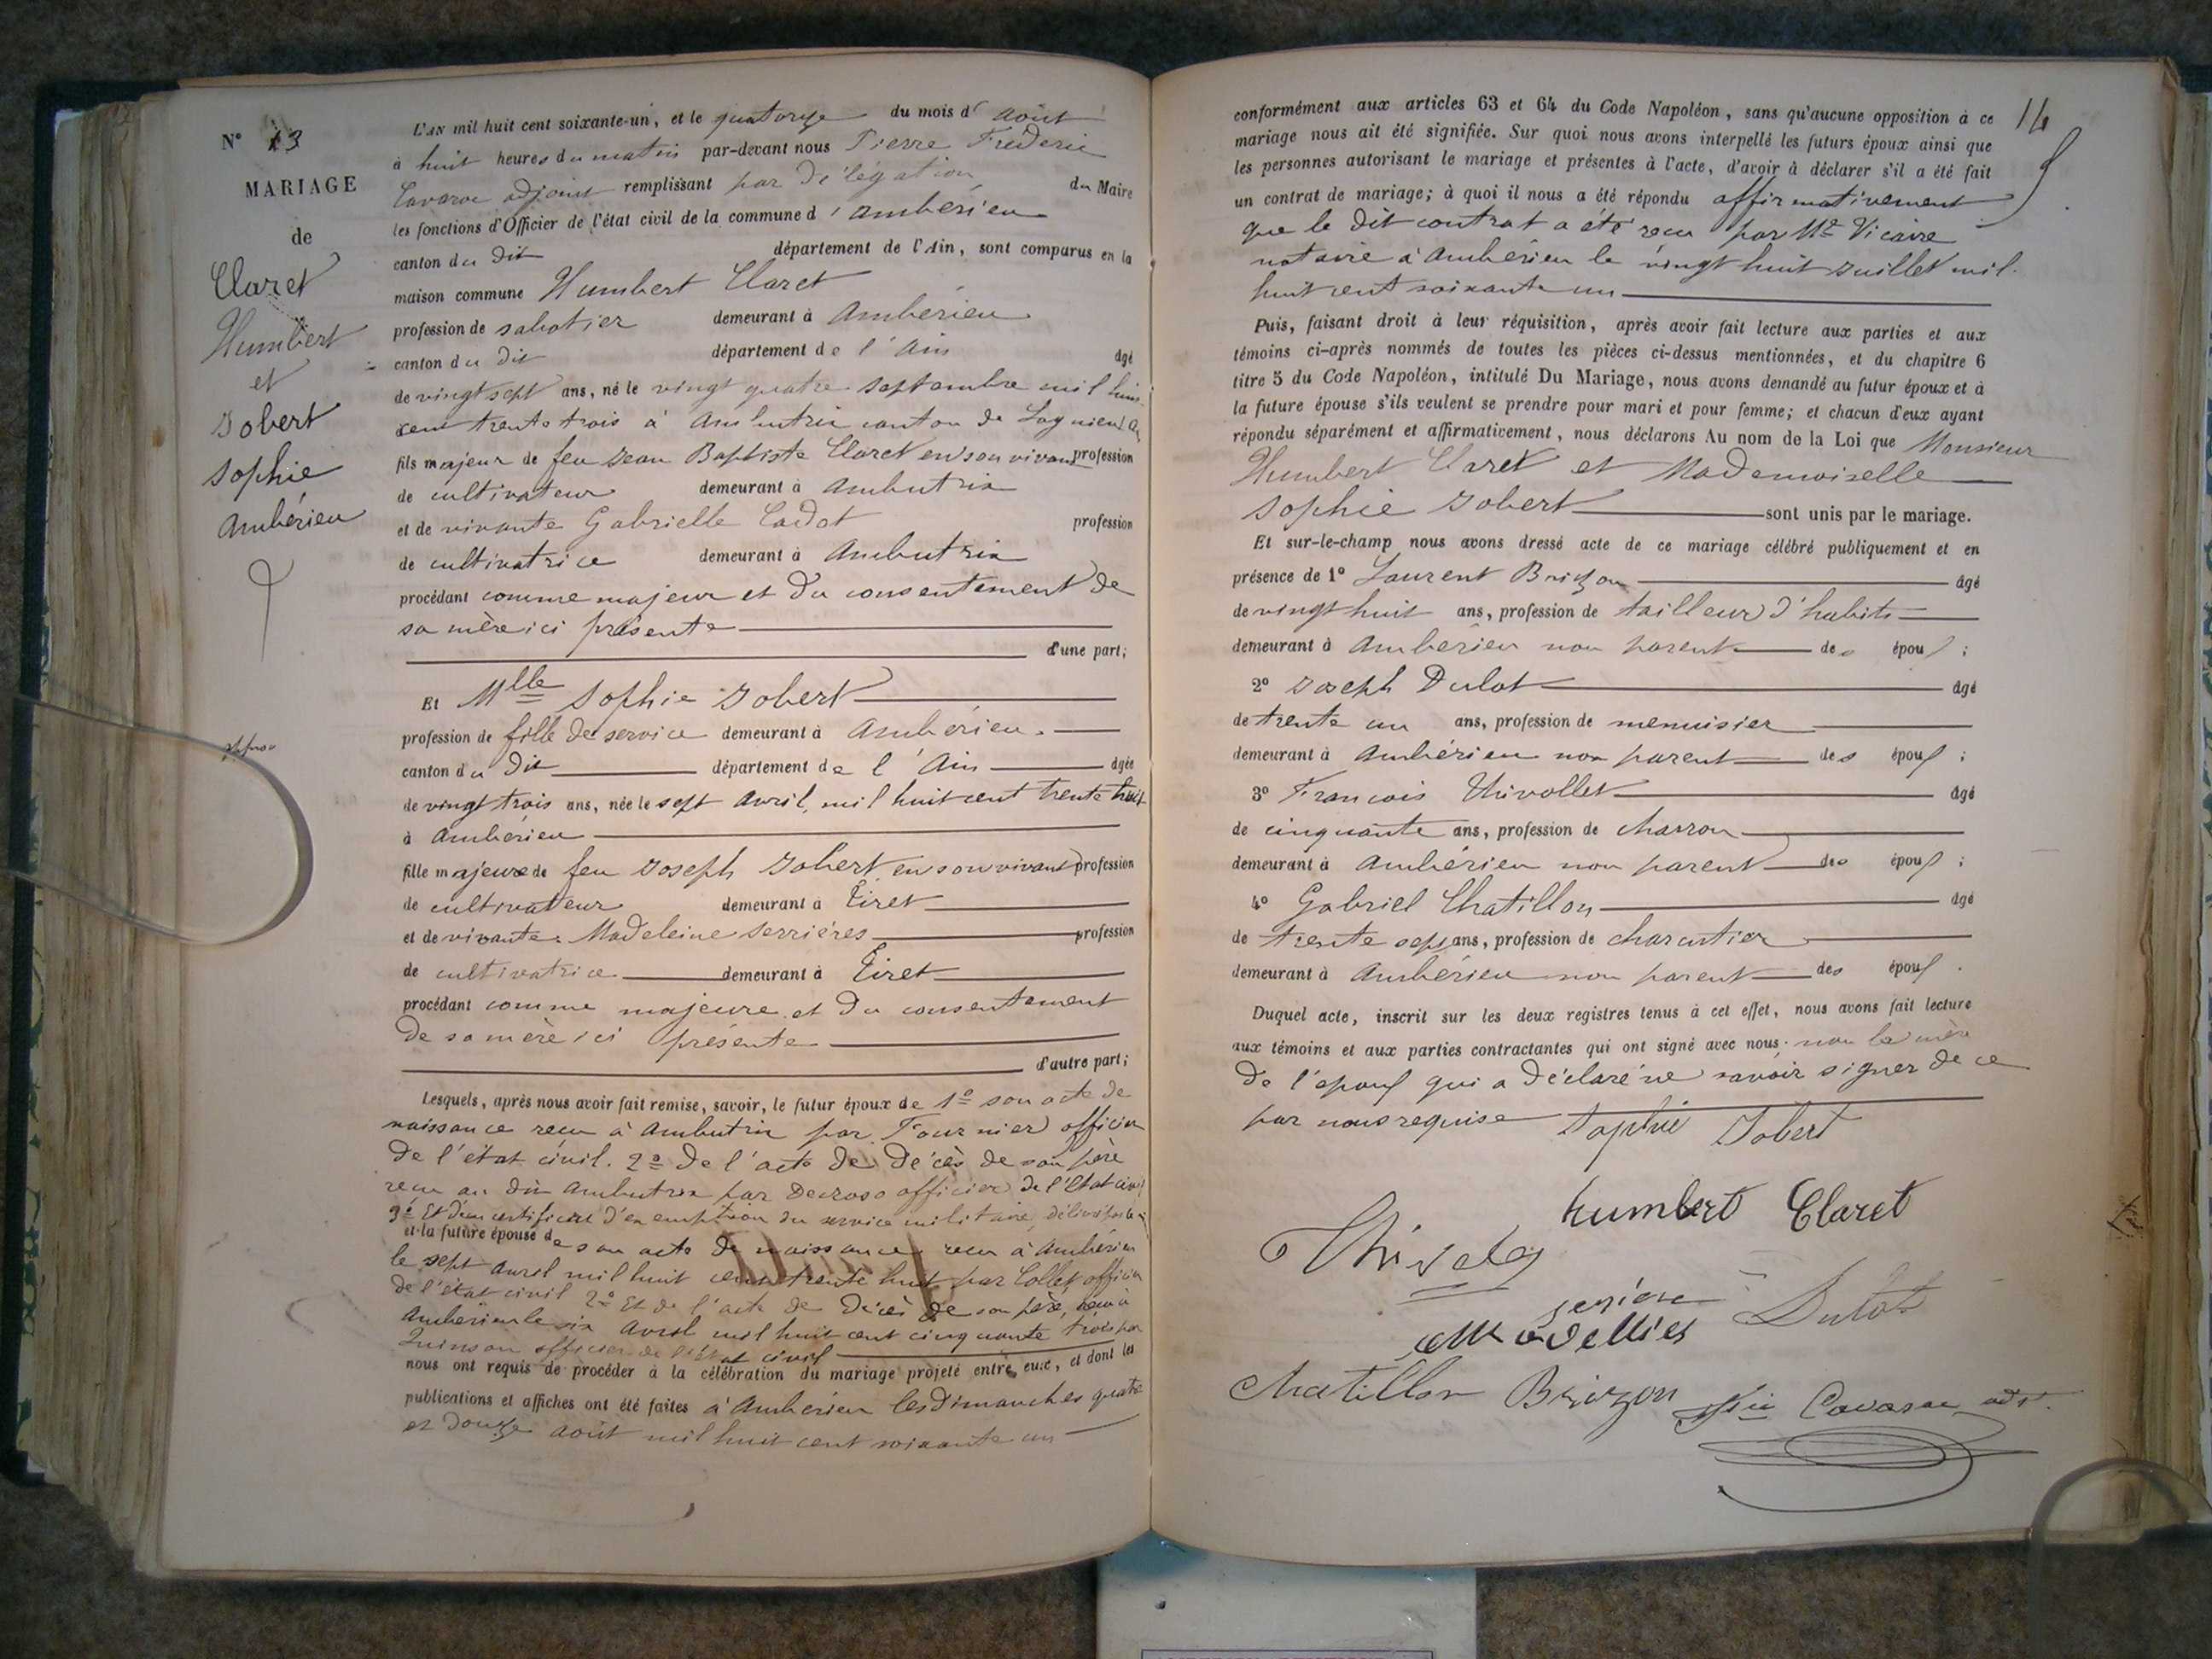 N° 13
MARIAGE
de
Claret
Humbert
et
Jobert
Sophie
Ambérieu
L'AN mil huit cent soixante-un, et le quatorze du mois d' Août
à huit heures du matin par-devant nous Pierre Fréderic
Cavarou adjoint remplissant par délégation du Maire
les fonctions d'Officier de l'état civil de la commune d'ambérieu
canton du dit département de l'Ain, sont comparus en la
maison commune Humbert Claret
profession de sabotier demeurant à Ambérieu
canton du dit département de l'Ain âgé
de vingt sept ans, né le vingt quatre septembre mil huit
cent trente trois à Ambutrix canton de Lagnieu
fils majeur de feu Jean Baptiste Claret en son vivant profession
de cultivateur demeurant à Ambutrix
et de vivante Gabrielle Cadot profession
de cultivatrice demeurant à Ambutrix
procédant comme majeur et du consentement de
sa mère ici présente
d'une part;
Et Mlle Sophie Jobert
profession de fille de service demeurant à Ambérieu.
canton du dit département de l'Ain âgée
de vingt trois ans, née le sept Avril mil huit cent trente huit
à Ambérieu
fille majeure de feu Joseph Jobert en son vivant profession
de cultivateur demeurant à Tiret
et de vivante Madeleine Serrières profession
de cultivatrice demeurant à Tiret
procédant comme majeure et du consentement
De sa mère ici présente
d'autre part;
Lesquels, après nous avoir fait remise, savoir, le futur époux de 1° son acte de
naissance reçu à Ambutrix par Fournier officier
De l'état civil. 2° De l'acte de décès de son père
reçu au dit Ambutrix par Decroso officier de l'état civil
3° Et d'un certificat d'exemption du service militaire, délivré par le
et la future épouse de son acte de naissance reçu à Ambérieu
le sept avril mil huit cent trente huit par Collet officier
de l'état civil 2° Et de l'acte de décès de son père, reçu à
Ambérieu le six Avril mil huit cent cinquante trois par
Quinson officier de l'état civil
nous ont requis de procéder à la célébration du mariage projeté entre eux, et dont les
publications et affiches ont été faites à Ambérieu les Dimanches quatre
et douze Août mil huit cent soixante un
14
conformément aux articles 63 et 64 du Code Napoléon, sans qu'aucune opposition à ce
mariage nous ait été signifiée. Sur quoi nous avons interpellé les futurs époux ainsi que
les personnes autorisant le mariage et présentes à l'acte, d'avoir à déclarer s'il a été fait
un contrat de mariage; à quoi il nous a été répondu affirmativement
que le dit contrat a été reçu par Me Vicaire
notaire à Ambérieu le vingt huit Juillet mil
huit cent soixante un
Puis, faisant droit à leur réquisition, après avoir fait lecture aux parties et aux
témoins ci-après nommés de toutes les pièces ci-dessus mentionnées, et du chapitre 6
titre 5 du Code Napoléon, intitulé Du Mariage, nous avons demandé au futur époux et à
la future épouse s'ils veulent se prendre pour mari et pour femme; et chacun d'eux ayant
répondu séparément et affirmativement, nous déclarons Au nom de la Loi que Monsieur
Humbert Claret et Mademoiselle
Sophie Jobert sont unis par le mariage.
Et sur-le-champ nous avons dressé acte de ce mariage célébré publiquement et en
présence de 1° Laurent Brizon âgé
de vingt huit ans, profession de tailleur d'habits
demeurant à Ambérieu non parent des époux ;
2° Joseph Dulot âgé
de trente un ans, profession de menuisier
demeurant à Ambérieu non parent des époux ;
3° François Thivollet âgé
de cinquante ans, profession de charron
demeurant à Ambérieu non parent des époux ;
4° Gabriel Chatillon âgé
de trente sept ans, profession de charcutier
demeurant à Ambérieu non parent des époux .
Duquel acte, inscrit sur les deux registres tenus à cet effet, nous avons fait lecture
aux témoins et aux parties contractantes qui ont signé avec nous; non la mère
De l'époux qui a déclaré ne savoir signer de ce
par nous requise Sophie Jobert
humbert Claret
Dulot
Chatillon Brizon